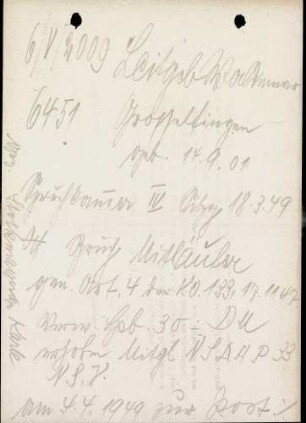 6/V/2009 Leitgeb Waldemar
6451 Grosselfingen
geb. 14.9.01
Spruchkammer IV Sitzg 18.3.49
Spruch Mitläufer
gem. Art. 4 der KO. 133, 17.11.47
Verw. Geb. 30.- DM
erhoben Mitgl. NSDAP 33
N.S.V.
am 4.4.1949 zur Post :/